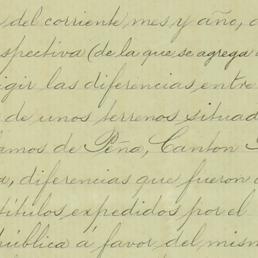 del corriente mes y año, a
spectiva (de la que se agrega
igir las diferencias entre
de unos terrenos situad
lamos de Peña, Canton
a, diferencias que fueron
títulos expedidos por el
pública á favor del mism